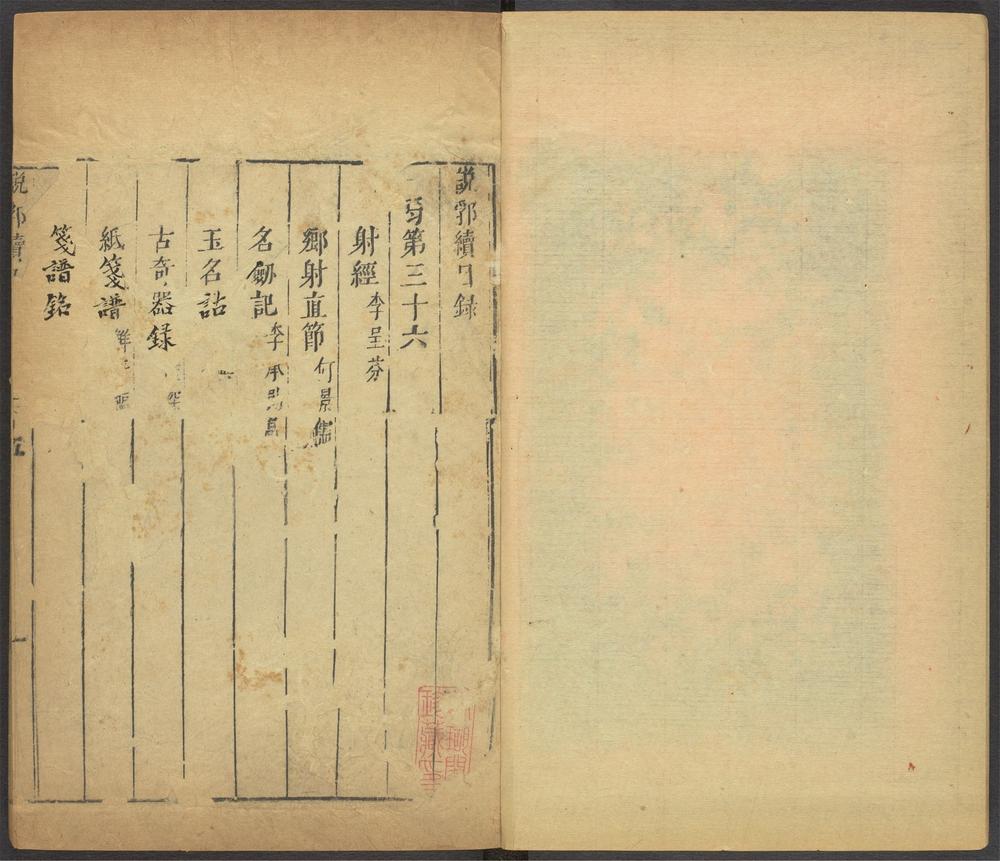 說郛續目錄
弓第三十六
射經 李呈芬
鄉射直節 何景儒
名劒記 李承勛
玉名詁
古奇器録
紙箋譜 鮮于
箋譜銘
說郛續